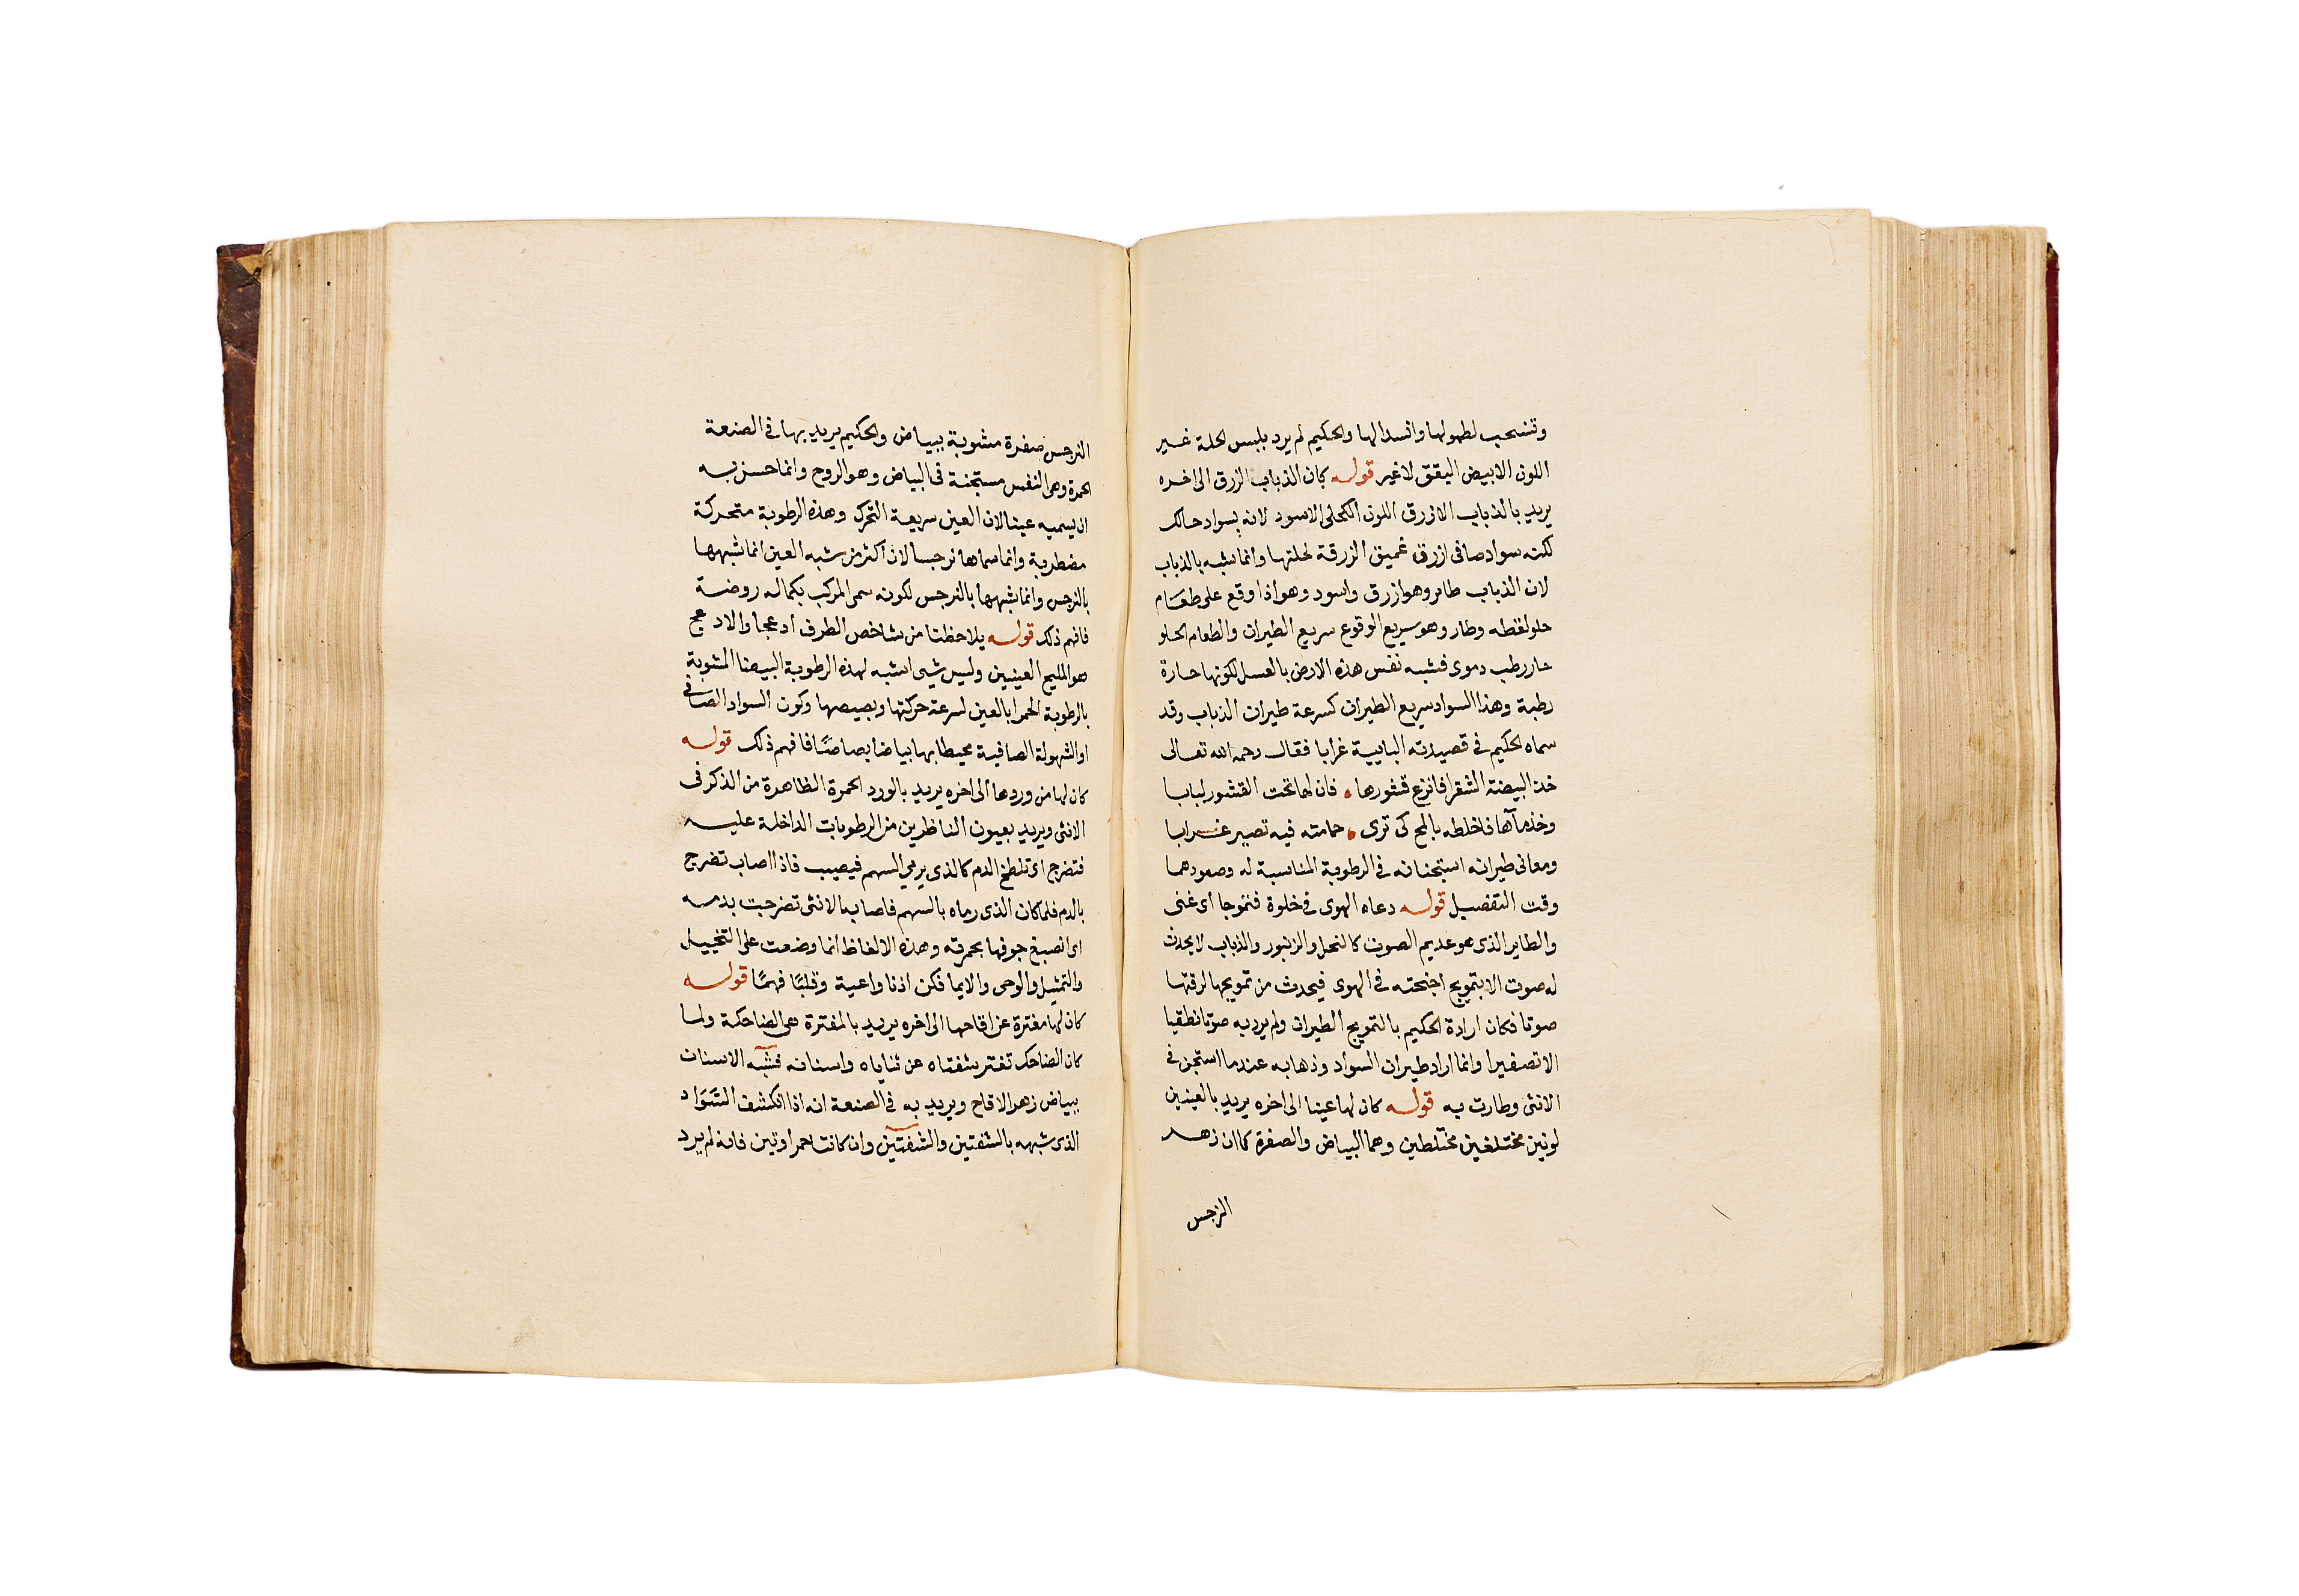 وتنسحب لطولها وانسدالها والحكيم لم يرد بلبس الحلة غير
اللون الابيض اليقق لاغير قوله كان الذباب الزرق الى اخره
يريد بالذباب الازرق اللون الكحلى الاسود لانه بسواد حالك
لكنه سواد صافى ازرق غميق الزرقة لحلتها وانما شبه بالذباب
لان الذباب طاير وهو ازرق واسود وهو اذا وقع على طعام
حلو لقطه وطار وهو سريع الوقوع سريع الطيران والطعام الحلو
حار رطب دموى فشبه نفس هذه الارض بالعسل لكونها حارة
رطبة وهذا السواد سريع الطيران كسرعة طيران الذباب وقد
سماه الحكيم فى قصيدته البايية غرابا فقال رحمه الله تعالى
خذ البيضة الشقرا فانزع قشورها ، فان لها تحت القشور لبابا
وخذ مآها فاخلطه بالمح كى ترى ، حمامته فيه تصير غرابا
ومعانى طيرانه استجنانه فى الرطوبة المناسبة له وصعودهما
وقت التفصيل قوله دعاه الهوى فى خلوة فتموجا اى غنى
والطاير الذى هو عديم الصوت كالنحل والزنبور والذباب لا يحدث
له صوت الا بتمويج اجنحته فى الهوى فيحدث من تمويجها لرقتها
صوتا فكان ارادة الحكيم بالتمويج الطيران ولم يرد به صوتا نطقيا
الا تصفيرا وانما اراد طيران السواد وذهابه عندما استجن فى
الانثى وطارت به قوله كان لها عينا الى اخره يريد بالعينين
لونين مختلفين مختلطين وهما البياض والصفرة كما ان زهر
النرجس
النرجس صفرة مشوبة ببياض والحكيم يريد بها فى الصنعة
الحمرة وهى النفس مستجنة فى البياض وهو الروح وانما حسن به
ان يسميه عينا لان العين سريعة التحرك وهذه الرطوبة متحركة
مضطربة وانما سماها نرجسا لان اكثر من شبه العين انما شبهها
بالنرجس وانما شبهها بالنرجس لكونه سمى المركب بكماله روضة
فافهم ذلك قوله يلاحظنا من شاخص الطرف أدعجا والادعج
هو المليح العينين وليس شيى اشبه لهذه الرطوبة البيضا المشوبة
بالرطوبة الحمرا بالعين لسرعة حركتها وبصيصها وكون السواد الصافى
او الشهولة الصافية محيطا بها بياضا بصاصًا فافهم ذلك قوله
كان لها من وردها الى اخره يريد بالورد الحمرة الظاهرة من الذكر فى
الانثى ويريد بعيون الناظرين من الرطوبات الداخلة عليه
فتضرج اى تلطخ الدم كالذى يرمى السهم فيصيب فاذا اصاب تضرج
بالدم فلما كان الذى رماه بالسهم فاصاب الانثى تضرجت بدمه
اى انصبغ جوفها بحمرته وهذه الالفاظ انما وضعت على التخييل
والتمثيل والوحى والايما فكن اذنا واعية وقلبًا فهمًا قوله
كان لها مفترة عن اقاحها الى اخره يريد بالمفترة هى الضاحكة ولما
كان الضاحك تفتر شفتاه عن ثناياه واسنانه فشبه الاسنان
ببياض زهر الاقاح ويريد به فى الصنعة انه اذا انكشف السَوَاد
الذى شبهه بالشفتين والشفتين وان كانت احمراوتين فانه لم يرد